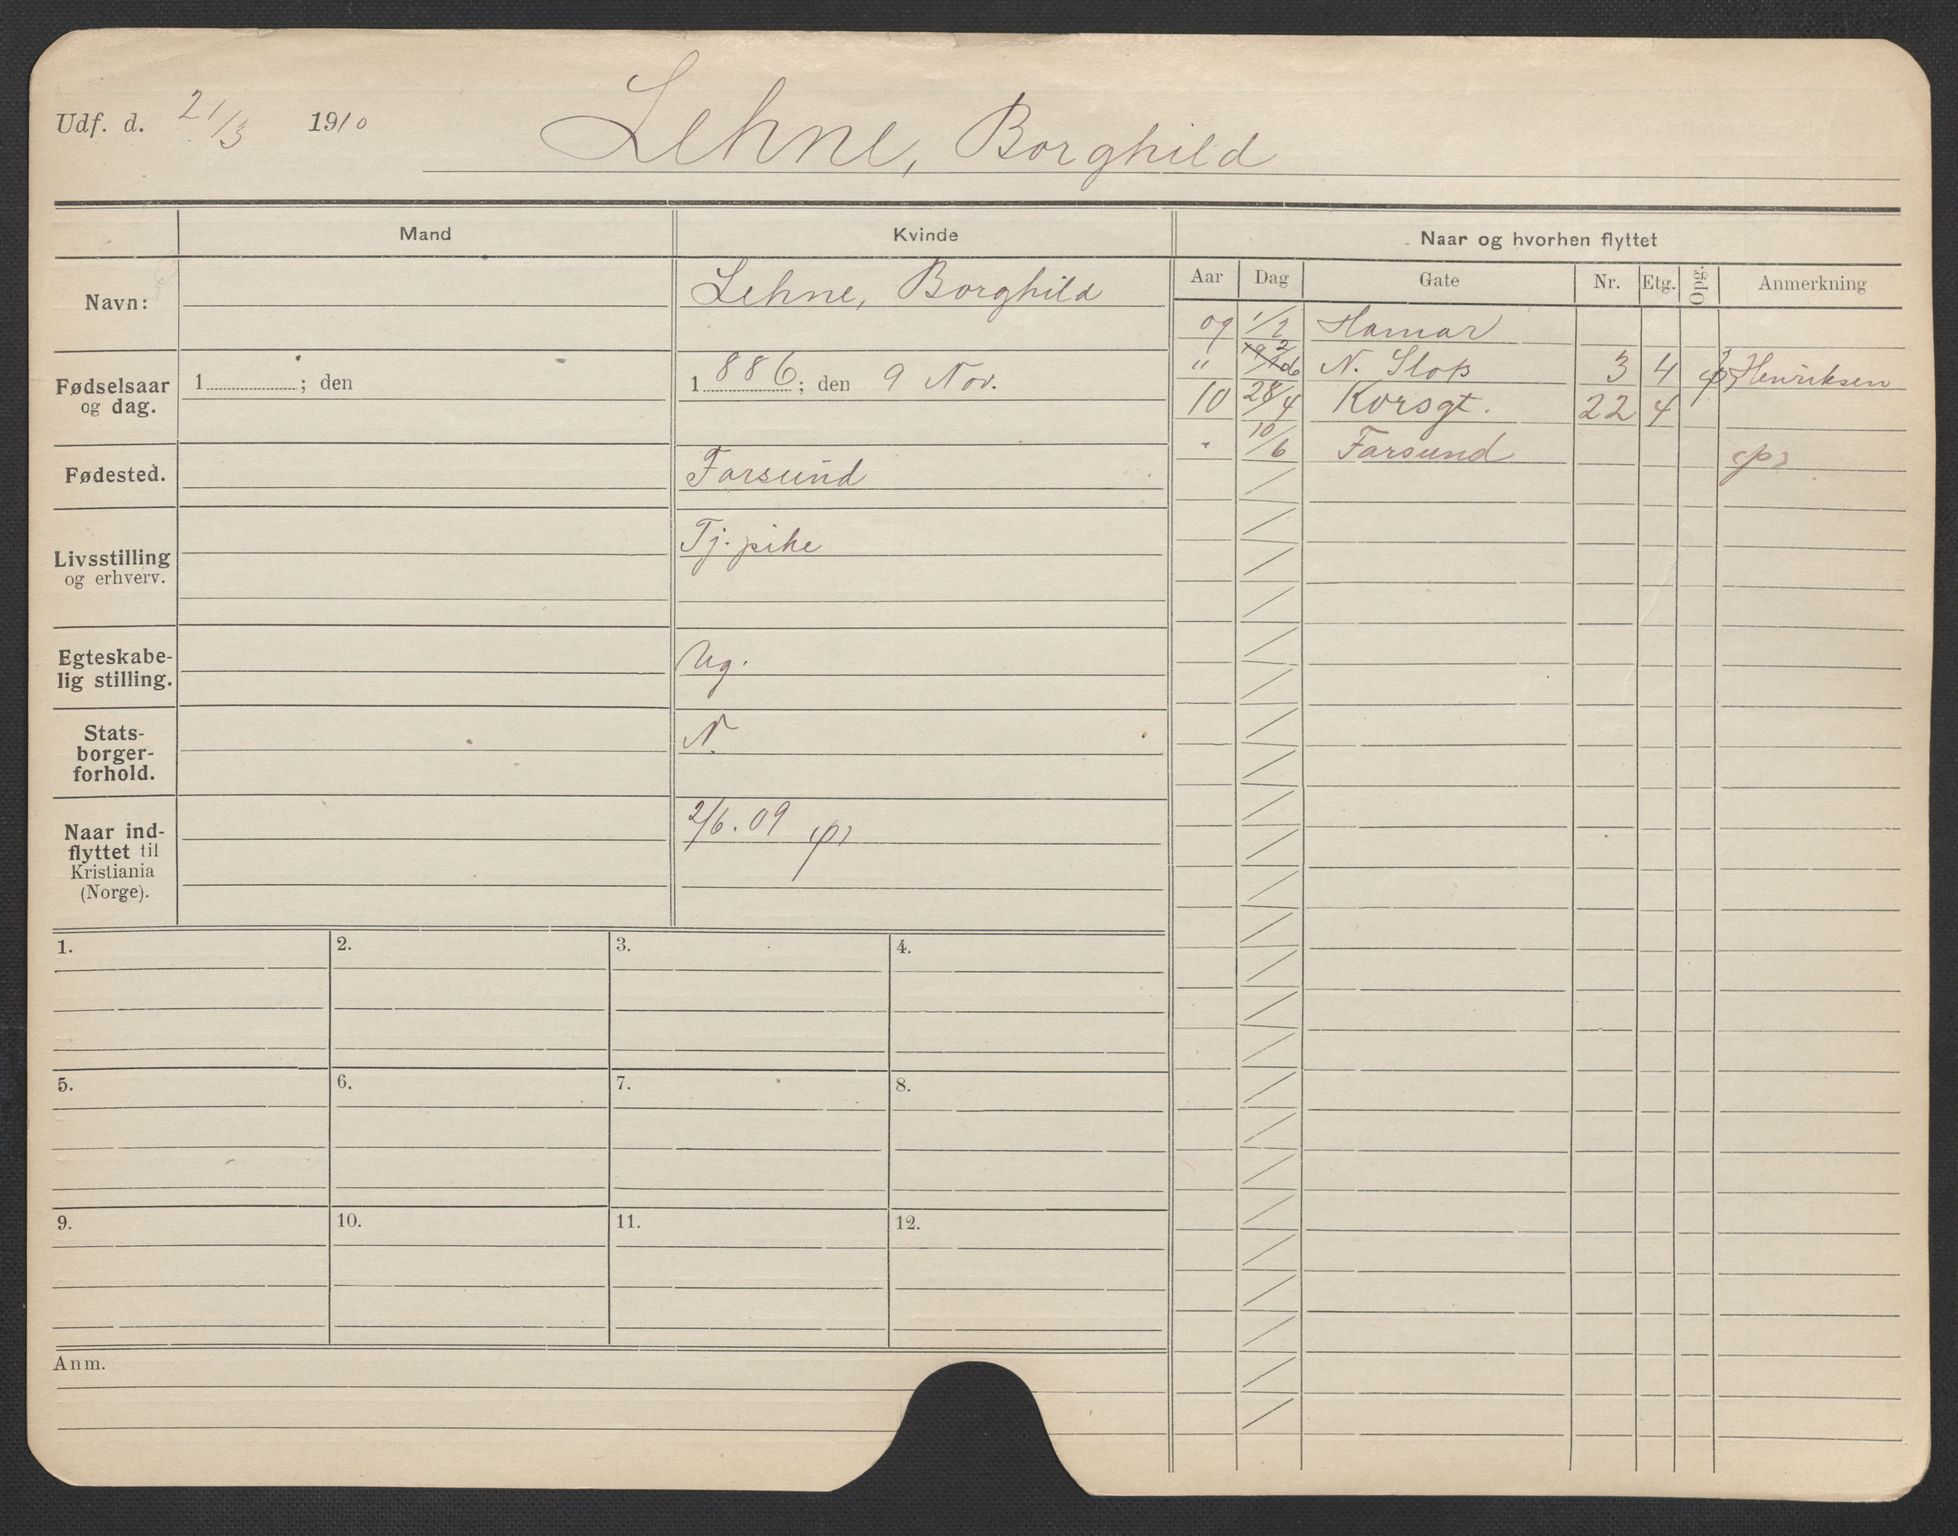 Udf. d. 21/3 1910 Lehne, Borghild
Mand Kvinde Naar og hvorhen flyttet
Aar Dag Gate Nr. Etg. Opg. Anmerkning
Navn: Lehne, Borghild
Fødselsaar og dag. 1 ; den 1886; den 9 Nov.
Fødested. Farsund
Livsstilling og erhverv. Tj. pike
Egteskabelig stilling. Ug.
Statsborgerforhold. N.
Naar indflyttet til Kristiania (Norge). 2/6. 09
09 1/2 Hamar
" N. Slots 3 4 Henriksen
10 28/4 Korsgt. 22 4
" 10/6 Farsund
1. 2. 3. 4.
5. 6. 7. 8.
9. 10. 11. 12.
Anm.